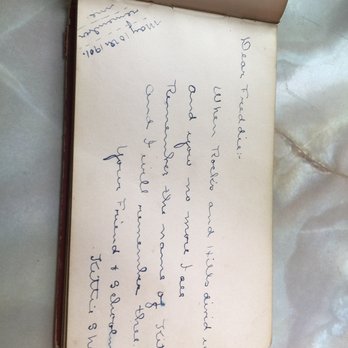 Dear Freddie:-
When Rocks and Hills divid u
And you no more I see
Remember the name of Kit
And I will remember thee
Your Friend & Schoolm
Kittie Sh
May 10th 1901.
remember
me